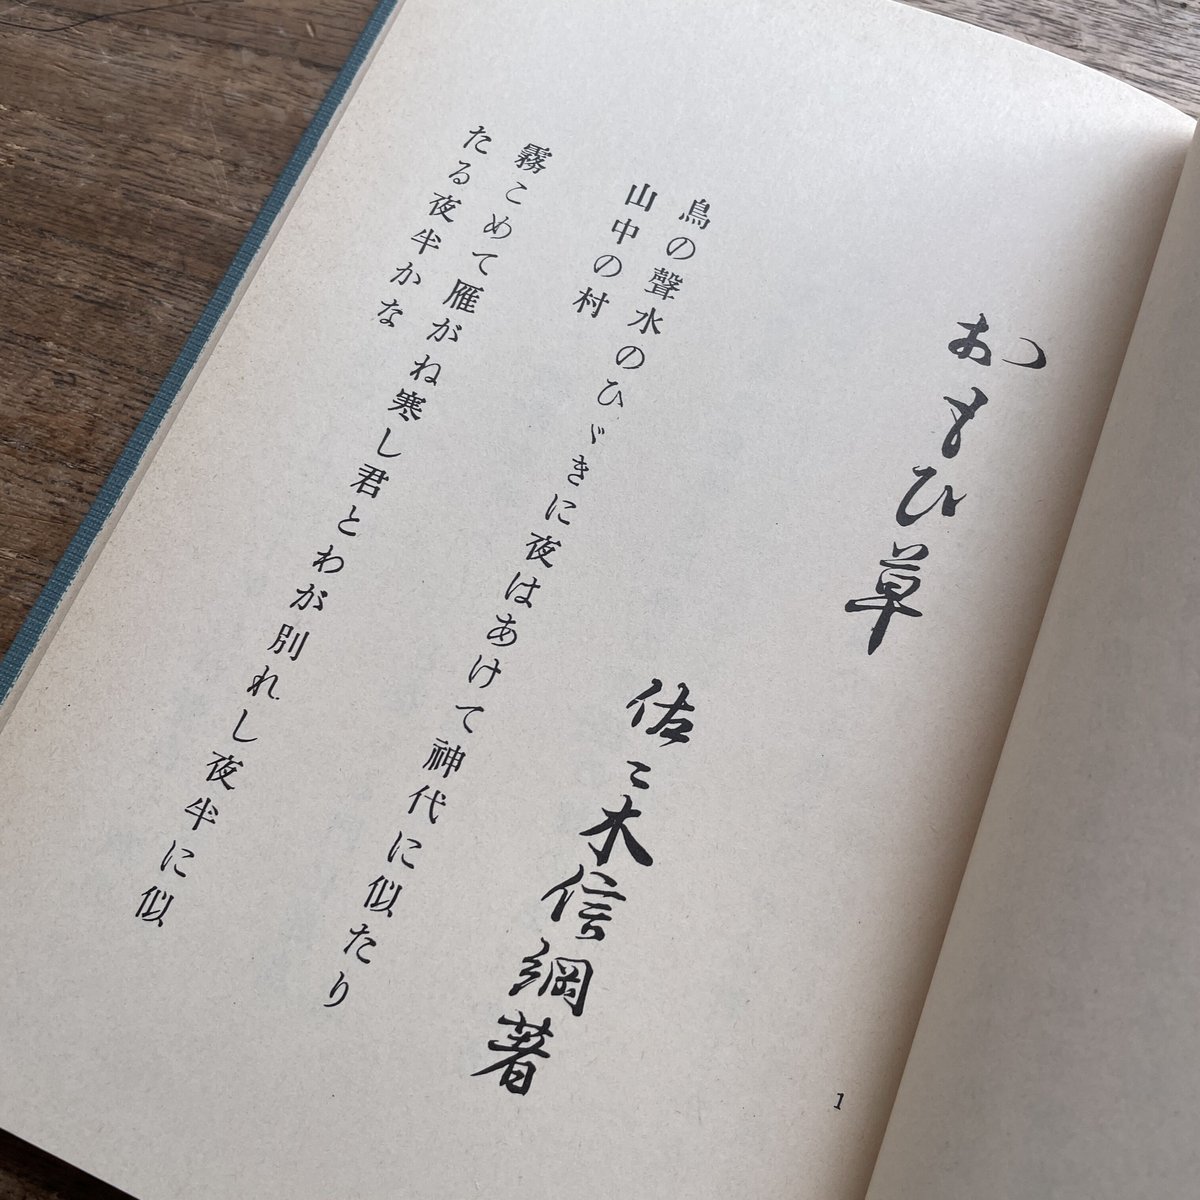 おもひ草
佐々木信綱著
鳥の聲水のひゞきに夜はあけて神代に似たり
山中の村
霧こめて雁がね寒し君とわが別れし夜半に似
たる夜半かな
1